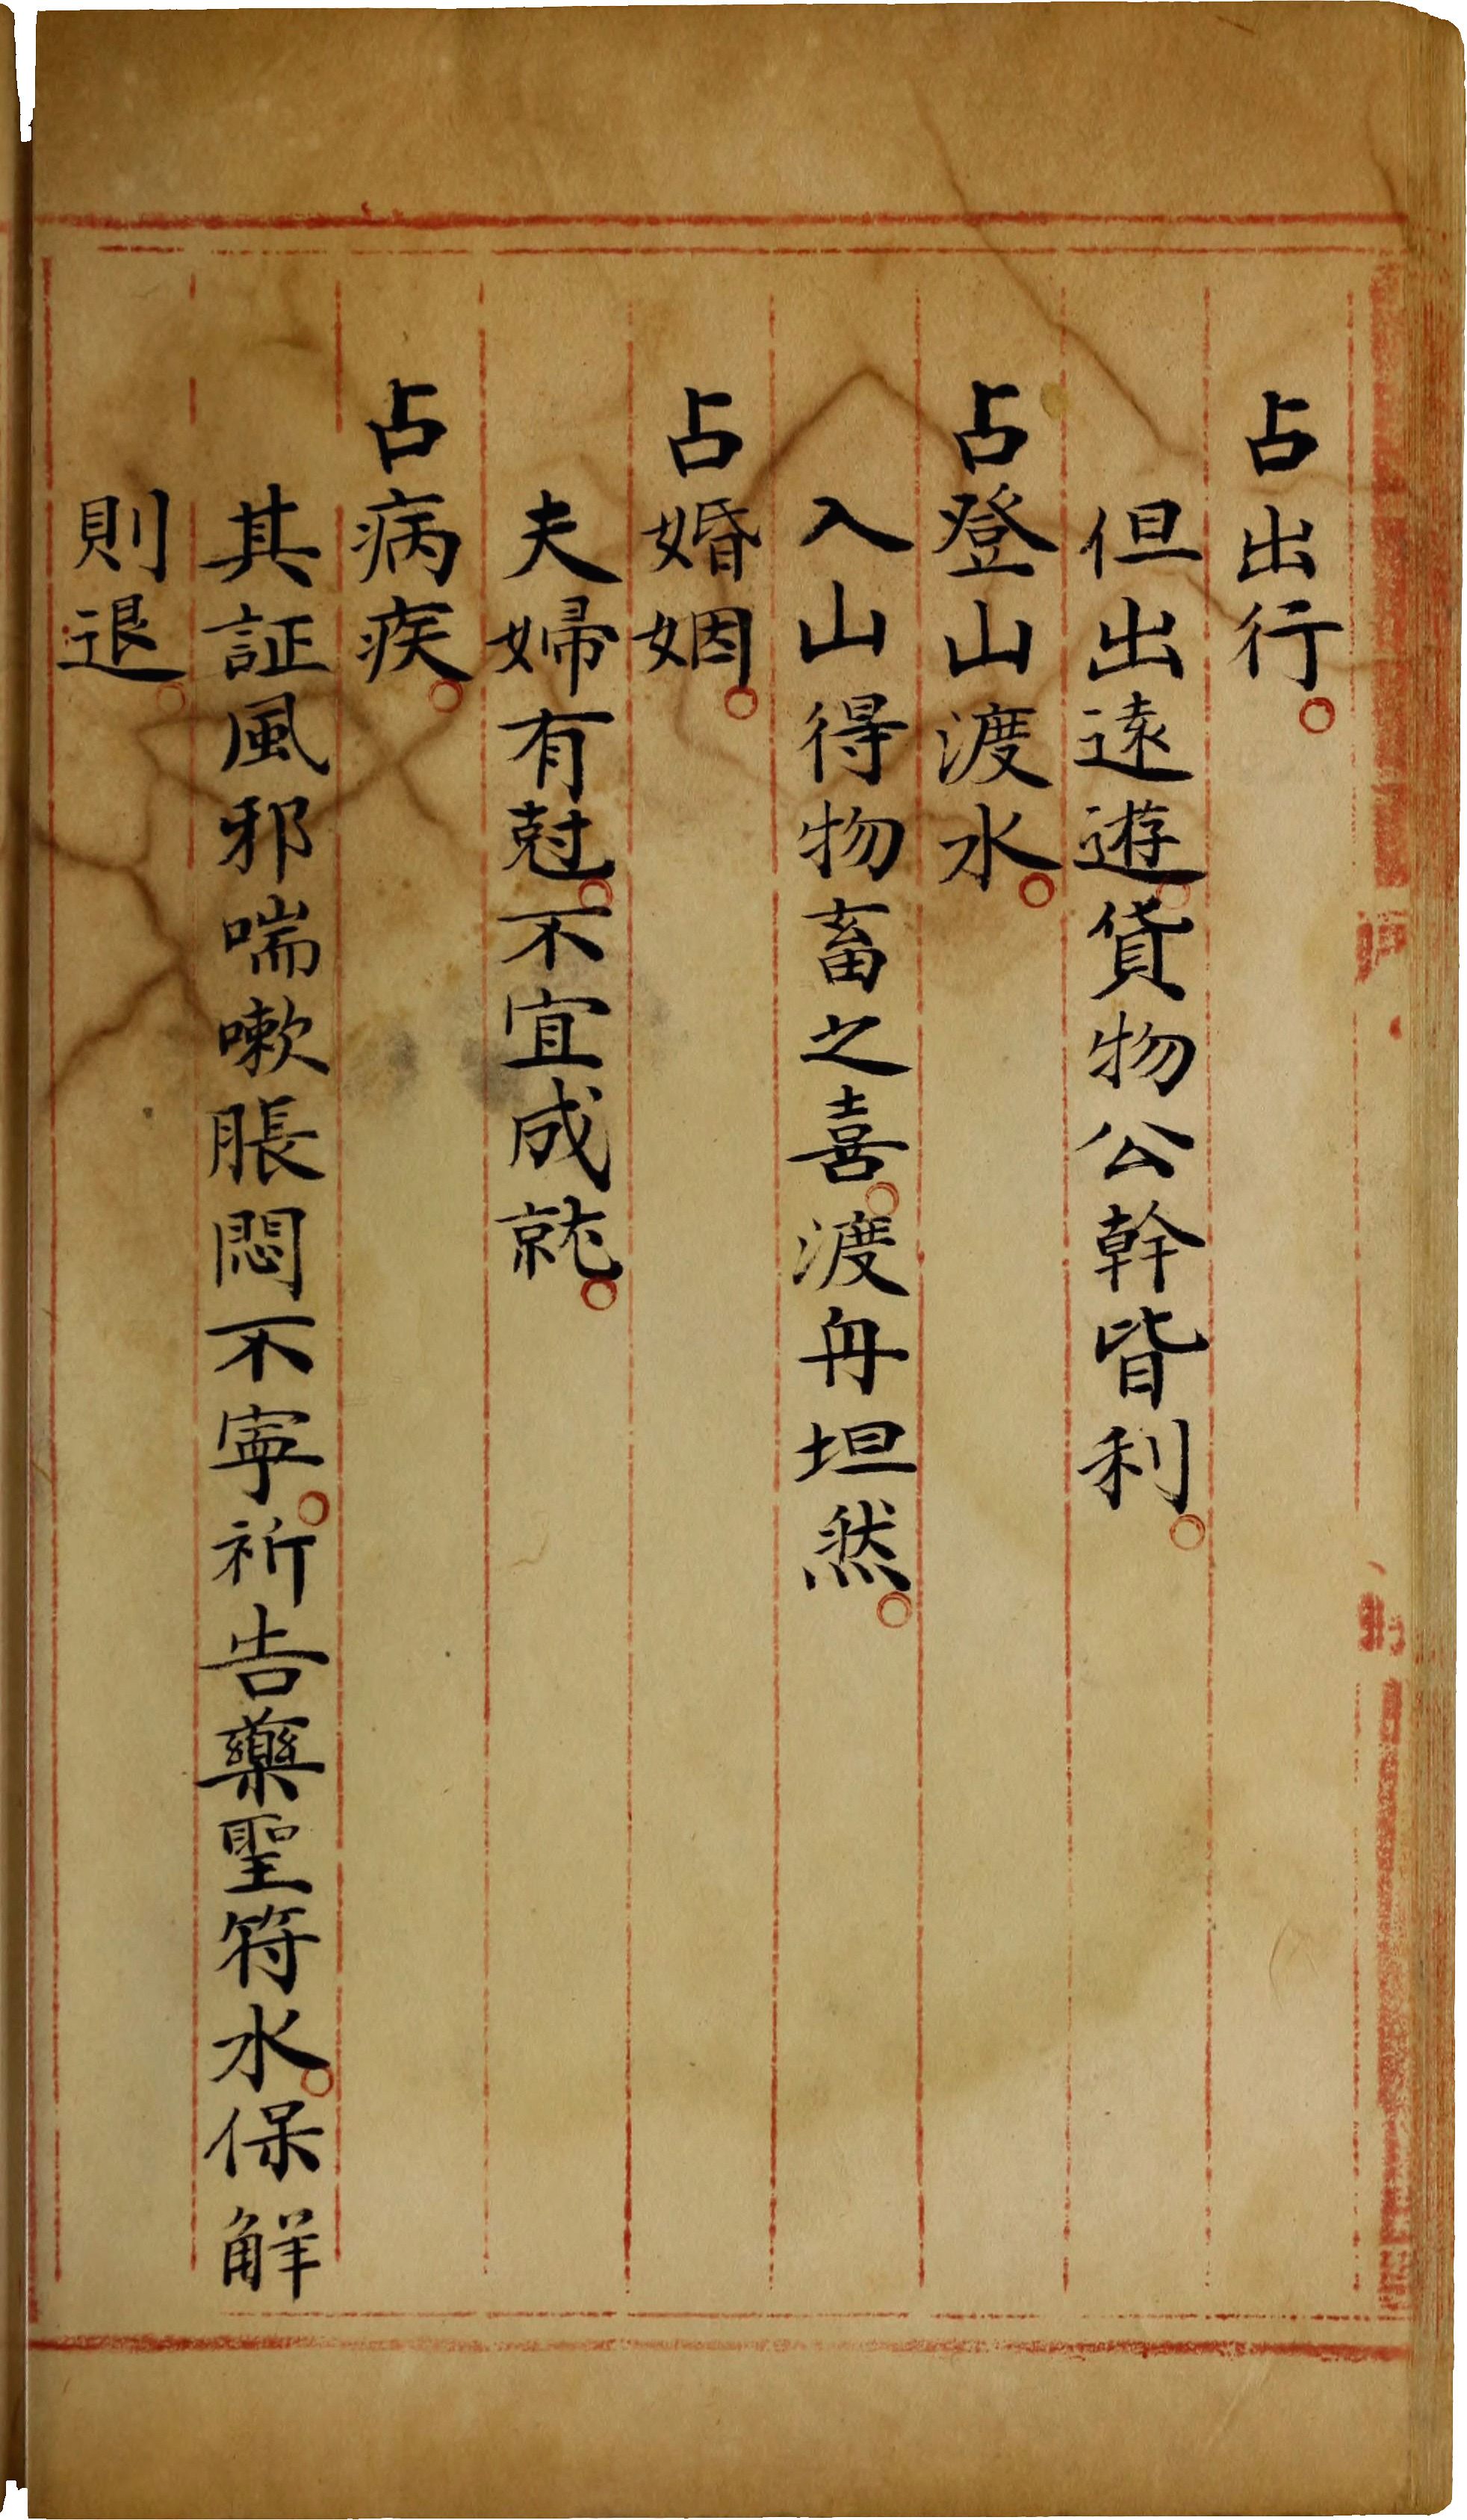 占出行。
但出遠遊。貨物公幹皆利。
占登山渡水。
入山得物畜之喜。渡舟坦然。
占婚姻。
夫婦有尅。不宜成就。
占病疾。
其証風邪喘嗽脹悶不寧。祈告藥聖符水。保解
則退。